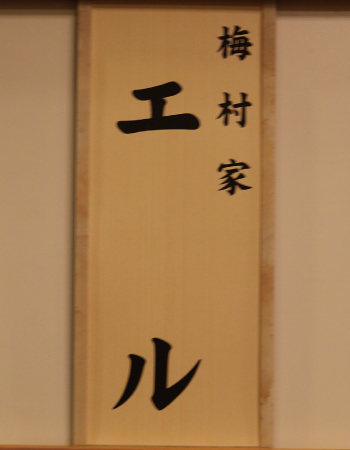 梅村家
エル